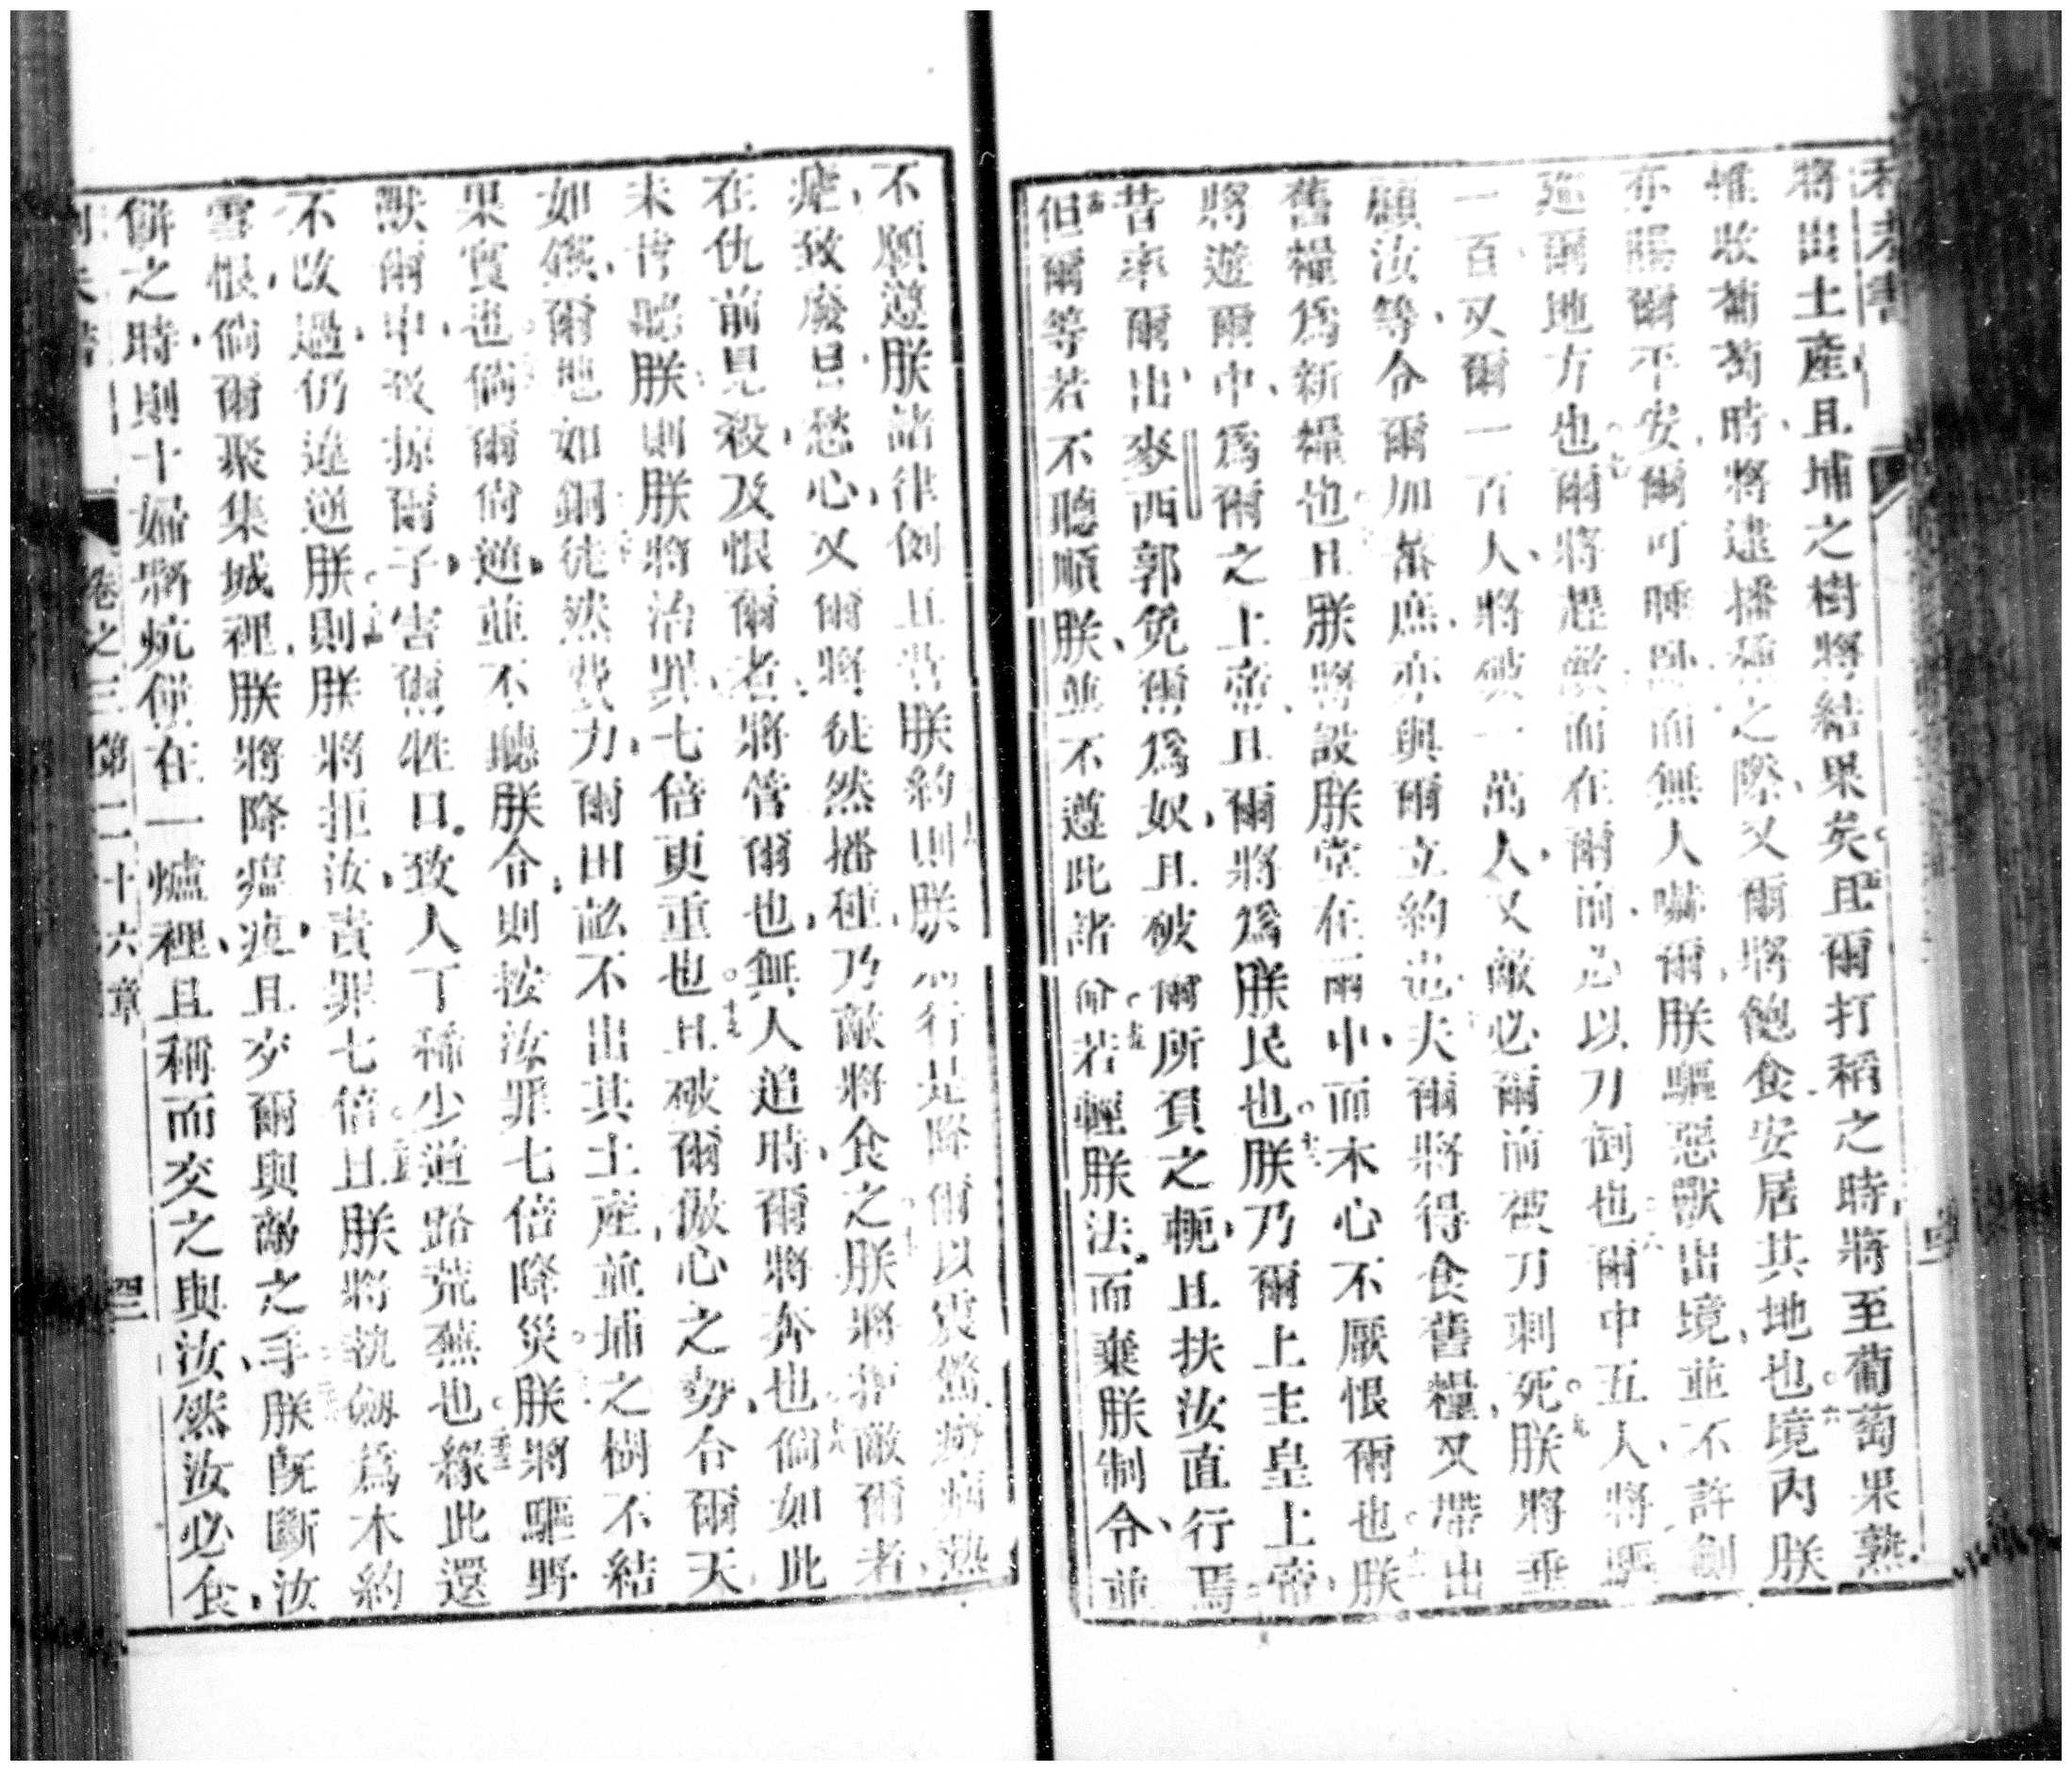 將出土產且埔之樹將結果矣。五且爾打稻之時將至葡萄果熟、
惟收葡萄時、將逮播種之際、又爾將飽食安居其地也。六境內朕
亦賜爾平安、爾可睡臥而無人嚇爾、朕驅惡獸出境、並不許劍
巡爾地方也。七爾將趕敵而在爾前、必以刀倒也。八爾中五人、將驅
一百、又爾一百人、將破一萬人、又敵必爾前被刀刺死。九朕將垂
顧汝等、令爾加蕃庶、亦與爾立約也。十夫爾將得食舊糧、又帶出
舊糧爲新糧也。十一且朕將設朕堂在爾中、而本心不厭恨爾也。十二朕
將遊爾中、爲爾之上帝、且爾將爲朕民也。十三朕乃爾上主皇上帝、
昔率爾出麥西郭免爾爲奴、且破爾所負之軛、且扶汝直行焉
十四但爾等若不聽順朕、並不遵此諸命。十五若輕朕法、而棄朕制令、並
不願遵朕諸律例且背朕約。十六則朕必行是降爾以震驚癆病熱
瘧、致廢目愁心、又爾將徒然播種、乃敵將食之。十七朕將拒敵爾者、
在仇前見殺、及恨爾者、將管爾也、無人追時、爾將奔也。十八倘如此
未肯聽朕則朕將治罪七倍更重也。十九且破爾傲心之勢、令爾天
如鐵、爾地如銅。二十徒然費力、爾田畝不出其土產、並埔之樹不結
果實也。倘爾尙逆、並不聽朕令、則按汝罪七倍降災。朕將驅野
獸爾中、致掠爾子、害爾牲口、致人丁稀少道路荒蕪也。緣此還
不改過、仍違逆朕。則朕將拒汝、責罪七倍。且朕將執劍爲木約
雪恨、倘爾聚集城裡、朕將降瘟疫、且交爾與敵之手。朕旣斷汝
餅之時、則十婦將炕餅在一爐裡、且稱而交之與汝、然汝必食、
卷之三第二十六章